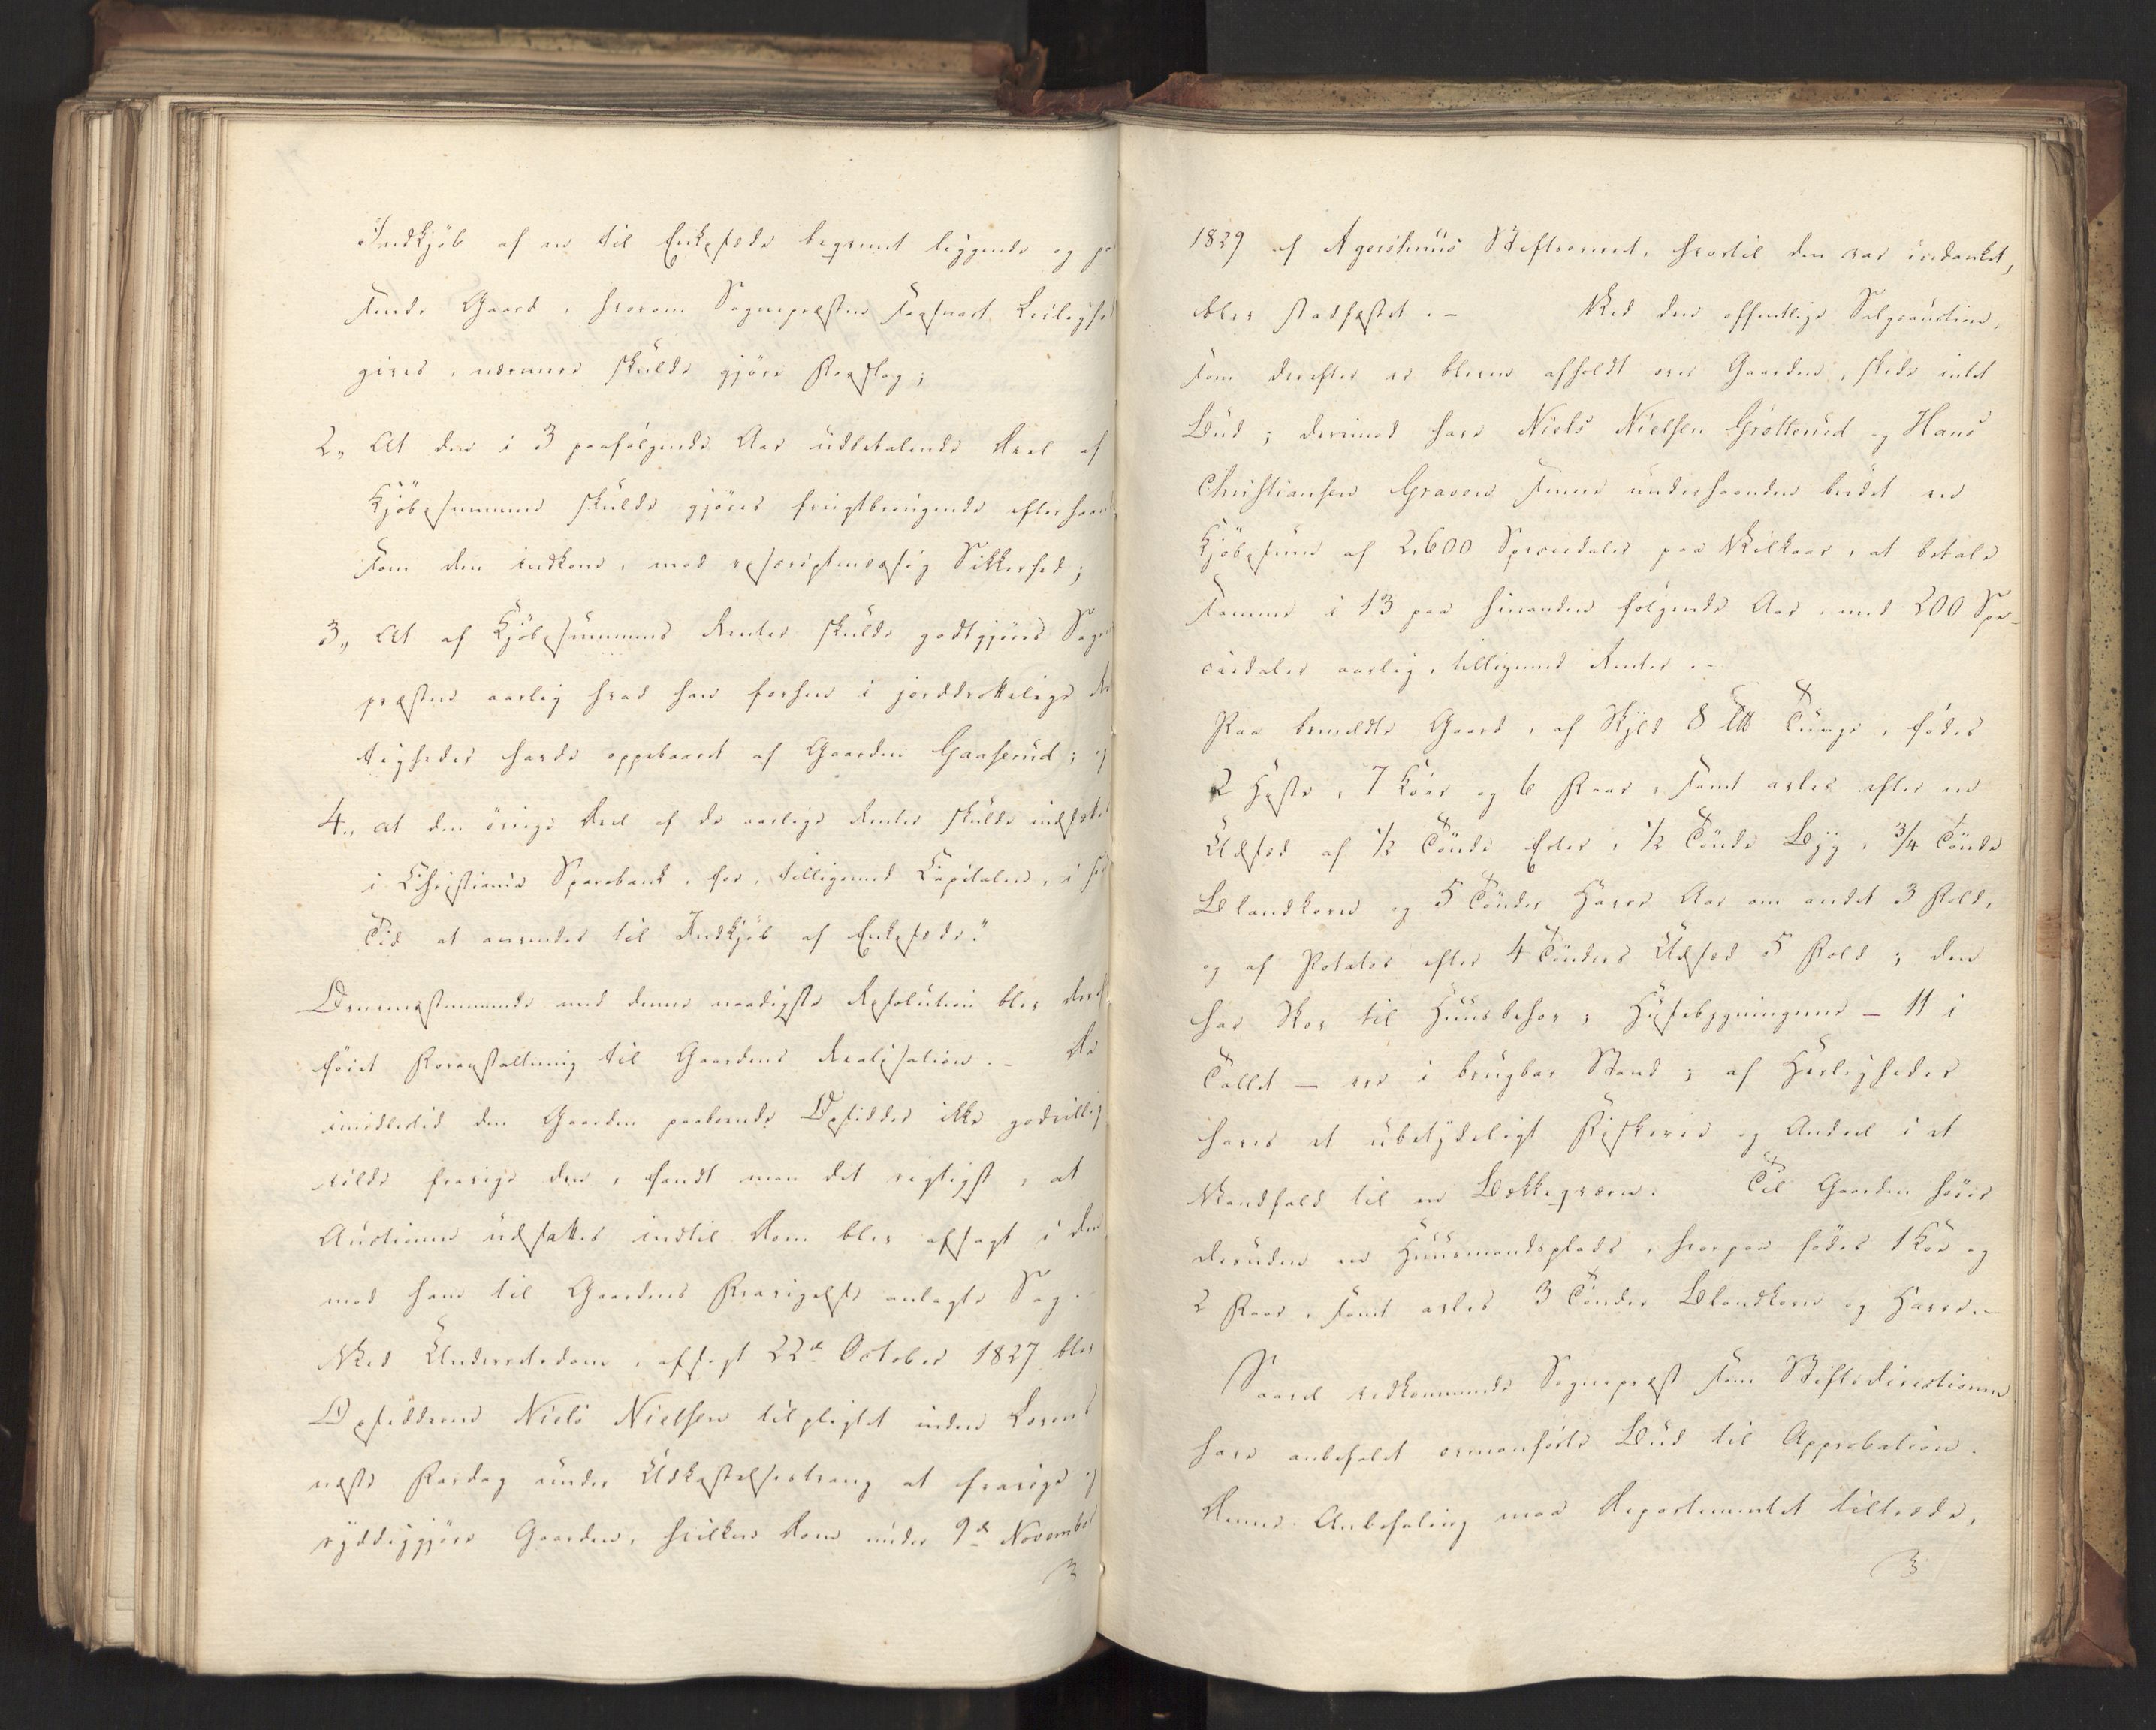 Indkjöb af en til Enkesæde beqvemt liggende og pas
sende Gaard, hvorom Sognepræsten saasnart Leilighed
gives, nærmere skulde gjöre Forslag;
2, At den i 3 paafølgende Aar udbetalende Deel af
Kjöbesummen skulde gjöres frugtbringende efterhaand
som den indkom, mod rescriptmæssig Sikkerhed;
3, At af Kjöbesummens Renter skulde godtgjöres Sogne
præsten aarlig hvad han forhen i jorddrottelige Ret
tigheder havde oppebaaret af Gaarden Gaaserud; og
4, at den övrige Deel af de aarlige Renter skulde indsættes
i Christiania Sparebank, for, tilligemed Capitalen, i sin
Tid at anvendes til Indkjöb af Enkesæde."
Overensstemmende med denne naadigste Resolution blev derefter
föiet Foranstaltning til Gaardens Realisation. – Da
imidlertid den Gaarden paaboende Opsidder ikke godvillig
vilde fravige den, fandt man det rigtigst, at
Auctionen udsattes indtil Dom blev afsagt i den
mod ham til Gaardens Fravigelse anlagte Sag. –
Ved Underretsdom, afsagt 22de October 1827 blev
Opsidderen Niels Nielsen tilpligtet inden Lovens
næste Fardag under Udkastelsestvang at fravige og
ryddiggjöre Gaarden, hvilken Dom under 9de November
1829 af Agershuus Stiftsoverret, hvortil den var indanket,
blev stadfæstet. – Ved den offentlige Salgsauction,
som derefter er bleven afholdt over Gaarden, skede intet
Bud; derimod have Niels Nielsen Gröttерud og Hans
Christiansen Graven senere underhaanden budet en
Kjöbesum af 2,600 Speciedaler paa Vilkaar, at betale
samme i 13 paa hinanden følgende Aar med 200 Spe-
ciedaler aarlig, tilligemed Renter. –
Paa bemeldte Gaard, af Skyld 8 L℔ Tunge, födes
2 Heste, 7 Köer og 6 Faar, samt avles efter en
Udsæd af 1/2 Tönde Erter, 1/2 Tönde Byg, 3/4 Tönde
Blandkorn og 5 Tönder Havre Aar om andet 3 Fold,
og af Potatos efter 4 Tönders Udsæd 5 Fold; den
har Skov til Huusbehov; Husebygningerne – 11 i
Tallet – ere i brugbar Stand; af Herligheder
haves et ubetydeligt Fiskerie og Andeel i et
Vandfald til en Bækkeqværn. Til Gaarden hörer
desuden en Huusmandsplads, hvorpaa födes 1 Koe og
2 Faar, samt avles 3 Tönder Blandkorn og Havre. –
Saavel vedkommende Sognepræst som Stiftsdirectionen
have anbefalet ovenanförte Bud til Approbation.
Denne Anbefaling maa Departementet tiltræde,